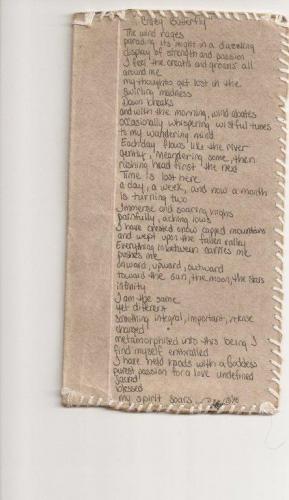 "Crazy Butterfly"
The wind rages
parading its might in a dazzling
display of strength and passion
I feel the breaths and groans all
around me
my thoughts get lost in the
swirling madness
Dawn breaks
and with the morning, wind abates
occasionally whispering wistful tunes
to my wandering mind
Each day flows like the river
gently, meandering some, then
rushing head first the next
Time is lost here
a day, a week, and now a month
is turning two
Immense and soaring highs
painfully, aching lows
I have crested snow capped mountains
and wept upon the fallen valley
Everything inbetween carries me
pushes me
onward, upward, outward
toward the sun, the moon, the stars
infinity
I am the same
yet different
something integral, important, intense
changed
metamorphised into this being I
find myself enthralled
I have held hands with a Goddess
purest passion for a love undefined
sacred
blessed
my spirit soars